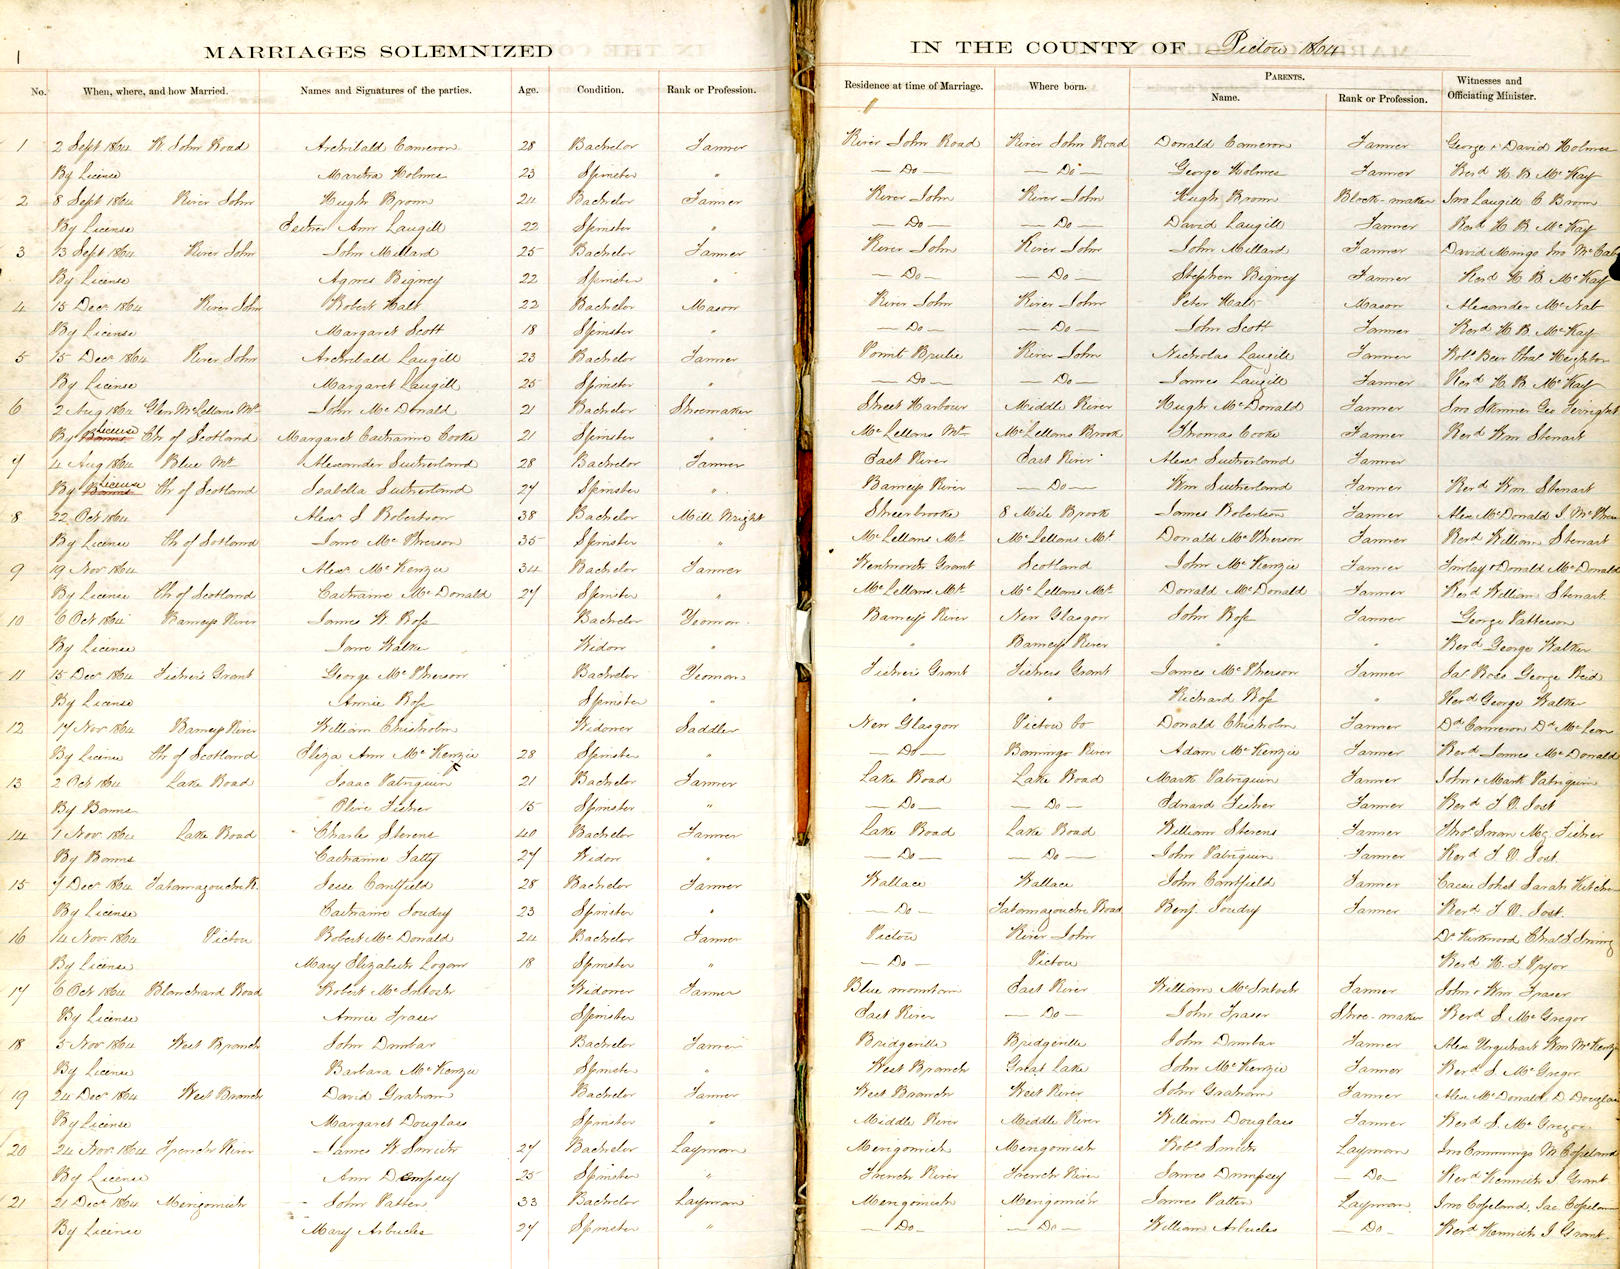 1
MARRIAGES SOLEMNIZED
IN THE COUNTY OF Pictou 1864
No. When, where, and how Married. Names and Signatures of the parties. Age. Condition. Rank or Profession. Residence at time of Marriage. Where born. PARENTS. Name. Rank or Profession. Witnesses and Officiating Minister.
1 2 Sept 1864 R. John Road Archibald Cameron 28 Bachelor Farmer River John Road River John Road Donald Cameron Farmer George & David Holmes
By License Martha Holmes 23 Spinster " — Do — — Do — George Holmes Farmer Revd H. B. McKay
2 8 Sept 1864 River John Hugh Brown 24 Bachelor Farmer River John River John Hugh Brown Block-maker Jno Langill C Brown
By License Esther Ann Langill 22 Spinster " — Do — — Do — David Langill Farmer Revd H. B. McKay
3 13 Sept 1864 River John John Millard 25 Bachelor Farmer River John River John John Millard Farmer David Mingo Jno
By License Agnes Bigney 22 Spinster " — Do — — Do — Stephen Bigney Farmer Revd H. B. McKay
4 15 Decr 1864 River John Robert Halt 22 Bachelor Mason River John River John Peter Halt Mason Alexander McNab
By License Margaret Scott 18 Spinster " — Do — — Do — John Scott Farmer Revd H. B. McKay
5 15 Decr 1864 River John Archibald Langill 23 Bachelor Farmer Point Brulie River John Nicholas Langill Farmer
By License Margaret Langill 25 Spinster " — Do — — Do — James Langill Farmer Revd H. B. McKay
6 2 Aug 1864 Glen McLellans Mt John McDonald 21 Bachelor Shoemaker Street Harbour Middle River Hugh McDonald Farmer Jno Skinner Geo
By Banns License Ch of Scotland Margaret Catharine Cooke 21 Spinster " McLellans Mt McLellans Brook Thomas Cooke Farmer Revd Wm Stewart
7 4 Aug 1864 Blue Mt Alexander Sutherland 28 Bachelor Farmer East River East River Alexr Sutherland Farmer
By Banns License Ch of Scotland Isabella Sutherland 27 Spinster " Barneys River — Do — Wm Sutherland Farmer Revd Wm Stewart
8 22 Oct 1864 Alexr S Robertson 38 Bachelor Mill Wright Sherbrooke 8 Mile Brook James Robertson Farmer Alex McDonald J
By License Ch of Sotland Jane McPherson 35 Spinster " McLellans Mt McLellans Mt Donald McPherson Farmer Revd William Stewart
9 19 Nov 1864 Alexr McKenzie 34 Bachelor Farmer Wentworth Grant Scotland John McKenzie Farmer Finlay & Donald McDonald
By License Ch of Scotland Catharine McDonald 27 Spinster " McLellans Mt McLellans Mt Donald McDonald Farmer Revd William Stewart
10 6 Oct 1864 Barneys River James W. Ross Bachelor Yeoman Barneys River New Glasgow John Ross Farmer George Patterson
By License Jane Walker Widow " " Barneys River " " Revd George Walker
11 15 Decr 1864 Fishers Grant George McPherson Bachelor Yeoman Fishers Grant Fishers Grant James McPherson Farmer Jas Ross George Reid
By License Annie Ross Spinster " " " Richard Ross " Revd George Walker
12 17 Nov 1864 Barneys River William Chisholm Widower Saddler New Glasgow Pictou Co Donald Chisholm Farmer Dd Cameron Dd McLean
By License Ch of Scotland Eliza Ann McKenzie 28 Spinster " — Do — River Adam McKenzie Farmer Revd James McDonald
13 2 Oct 1864 Lake Road Isaac Patriquin 21 Bachelor Farmer Lake Road Lake Road Mark Patriquin Farmer John & Mark Patriquin
By Banns Olive Fisher 15 Spinster " — Do — — Do — Edward Fisher Farmer Revd J. V. Jost
14 1 Nov 1864 Lake Road Charles Stevens 40 Bachelor Farmer Lake Road Lake Road William Stevens Farmer Thos Swan Fisher
By Banns Catharine Tatty 27 Widow " — Do — — Do — John Patriquin Farmer Revd J. V. Jost.
15 7 Decr 1864 Tatamagouche R. Jesse Cantfield 28 Bachelor Farmer Wallace Wallace John Cantfield Farmer Sarah
By License Catharine Soudry 23 Spinster " — Do — Tatamagouche Road Benj. Soudry Farmer Revd J. V. Jost.
16 14 Nov. 1864 Pictou Robert McDonald 24 Bachelor Farmer Pictou River John Dr Kirkwood Chas J Irving
By License Mary Elizabeth Logan 18 Spinster " — Do — Pictou Revd H. J. Pryor
17 6 Oct 1864 Blanchard Road Robert McIntosh Widower Farmer Blue mountain East River William McIntosh Farmer John & Wm Fraser
By License Annie Fraser Spinster East River — Do — John Fraser Shoe-maker Revd S. McGregor
18 5 Nov 1864 West Branch John Dunbar Bachelor Farmer Bridgeville Bridgeville John Dunbar Farmer Alex Urquhart Wm McKenzie
By License Barbara McKenzie Spinster " West Branch Great Lake John McKenzie Farmer Revd S. McGregor
19 24 Decr 1864 West Branch David Graham Bachelor Farmer West Branch West River John Graham Farmer Alex McDonald D. Douglas
By License Margaret Douglass Spinster " Middle River Middle River William Douglass Farmer Revd S. McGregor
20 24 Nov. 1864 French River James W. Smith 27 Bachelor Layman Merigomish Merigomish Robt Smith Layman Jno Cummings M Copeland
By License Ann Dempsey 25 Spinster " French River French River James Dempsey — Do — Revd Kenneth J Grant
21 21 Decr 1864 Merigomish John Patten 33 Bachelor Layman Merigomish Merigomish James Patten Layman Jno Copeland, Jas. Copeland
By License Mary Arbucles 27 Spinster " — Do — — Do — William Arbucles — Do — Revd Kenneth J Grant